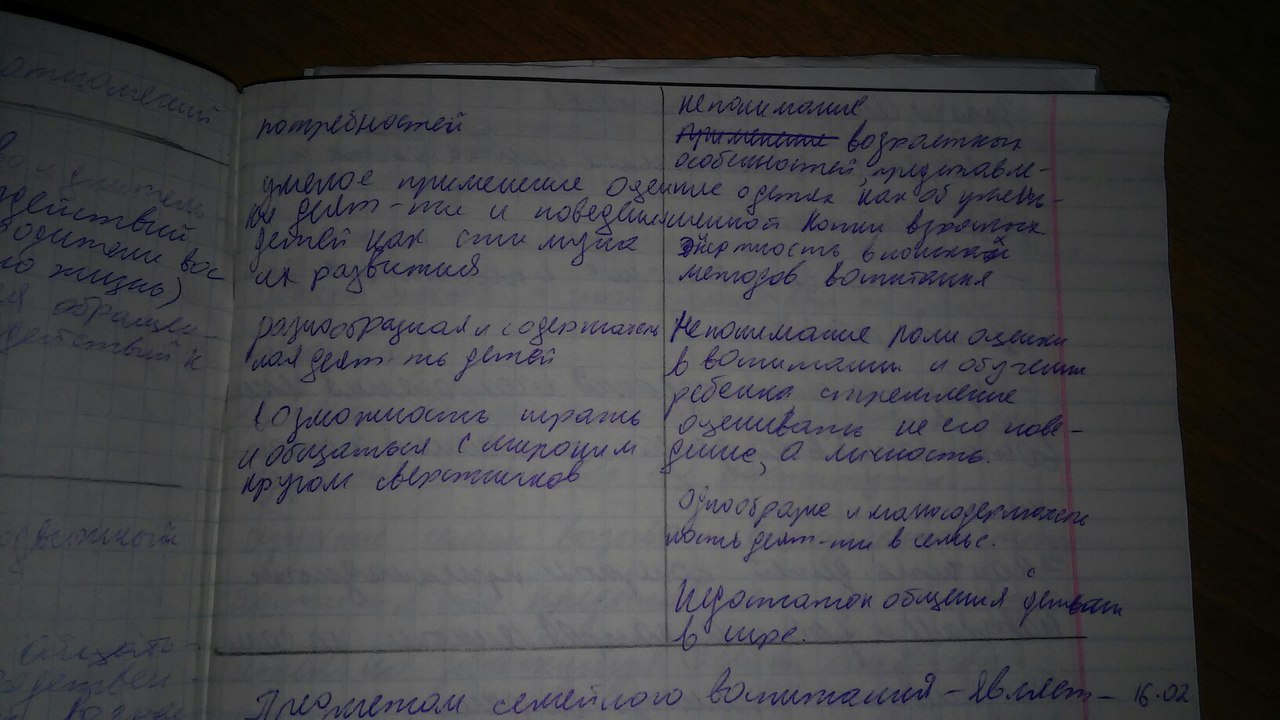 отношений
действий
водители вос
но жизнь)
я обращен-
действий к
потребностей
умелое применение оцен
ки деят-ти и поведения
детей как стимула
их развития
разнообразная и содержатель
ная деят-ть детей
возможность играть
и общаться с широким
кругом сверстников
непонимание
применение возрастных
особенностей, представле-
ние о детях как об умень-
шенной копии взрослых
Инертность в поисках
методов воспитания
Непонимание роли оценки
в воспитании и обучении
ребенка стремление
оценивать не его пове-
дение, а личность.
Однообразие и малосодержатель
ность деят-ти в семье.
Недостаток общения с детьми
в игре.
Предметом семейного воспитания – являет- 16.02